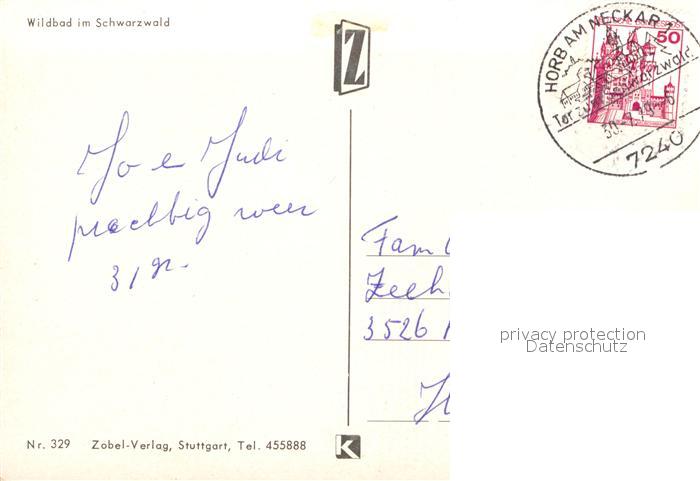 Wildbad im Schwarzwald
Z
HORB AM NECKAR 1
50
Tor zum Schwarzwald
7240
Jo e Judi
prachtig weer
31 gr.
Fam
Zeeh
3526
privacy protection
Datenschutz
Nr. 329 Zobel-Verlag, Stuttgart, Tel. 455888
K